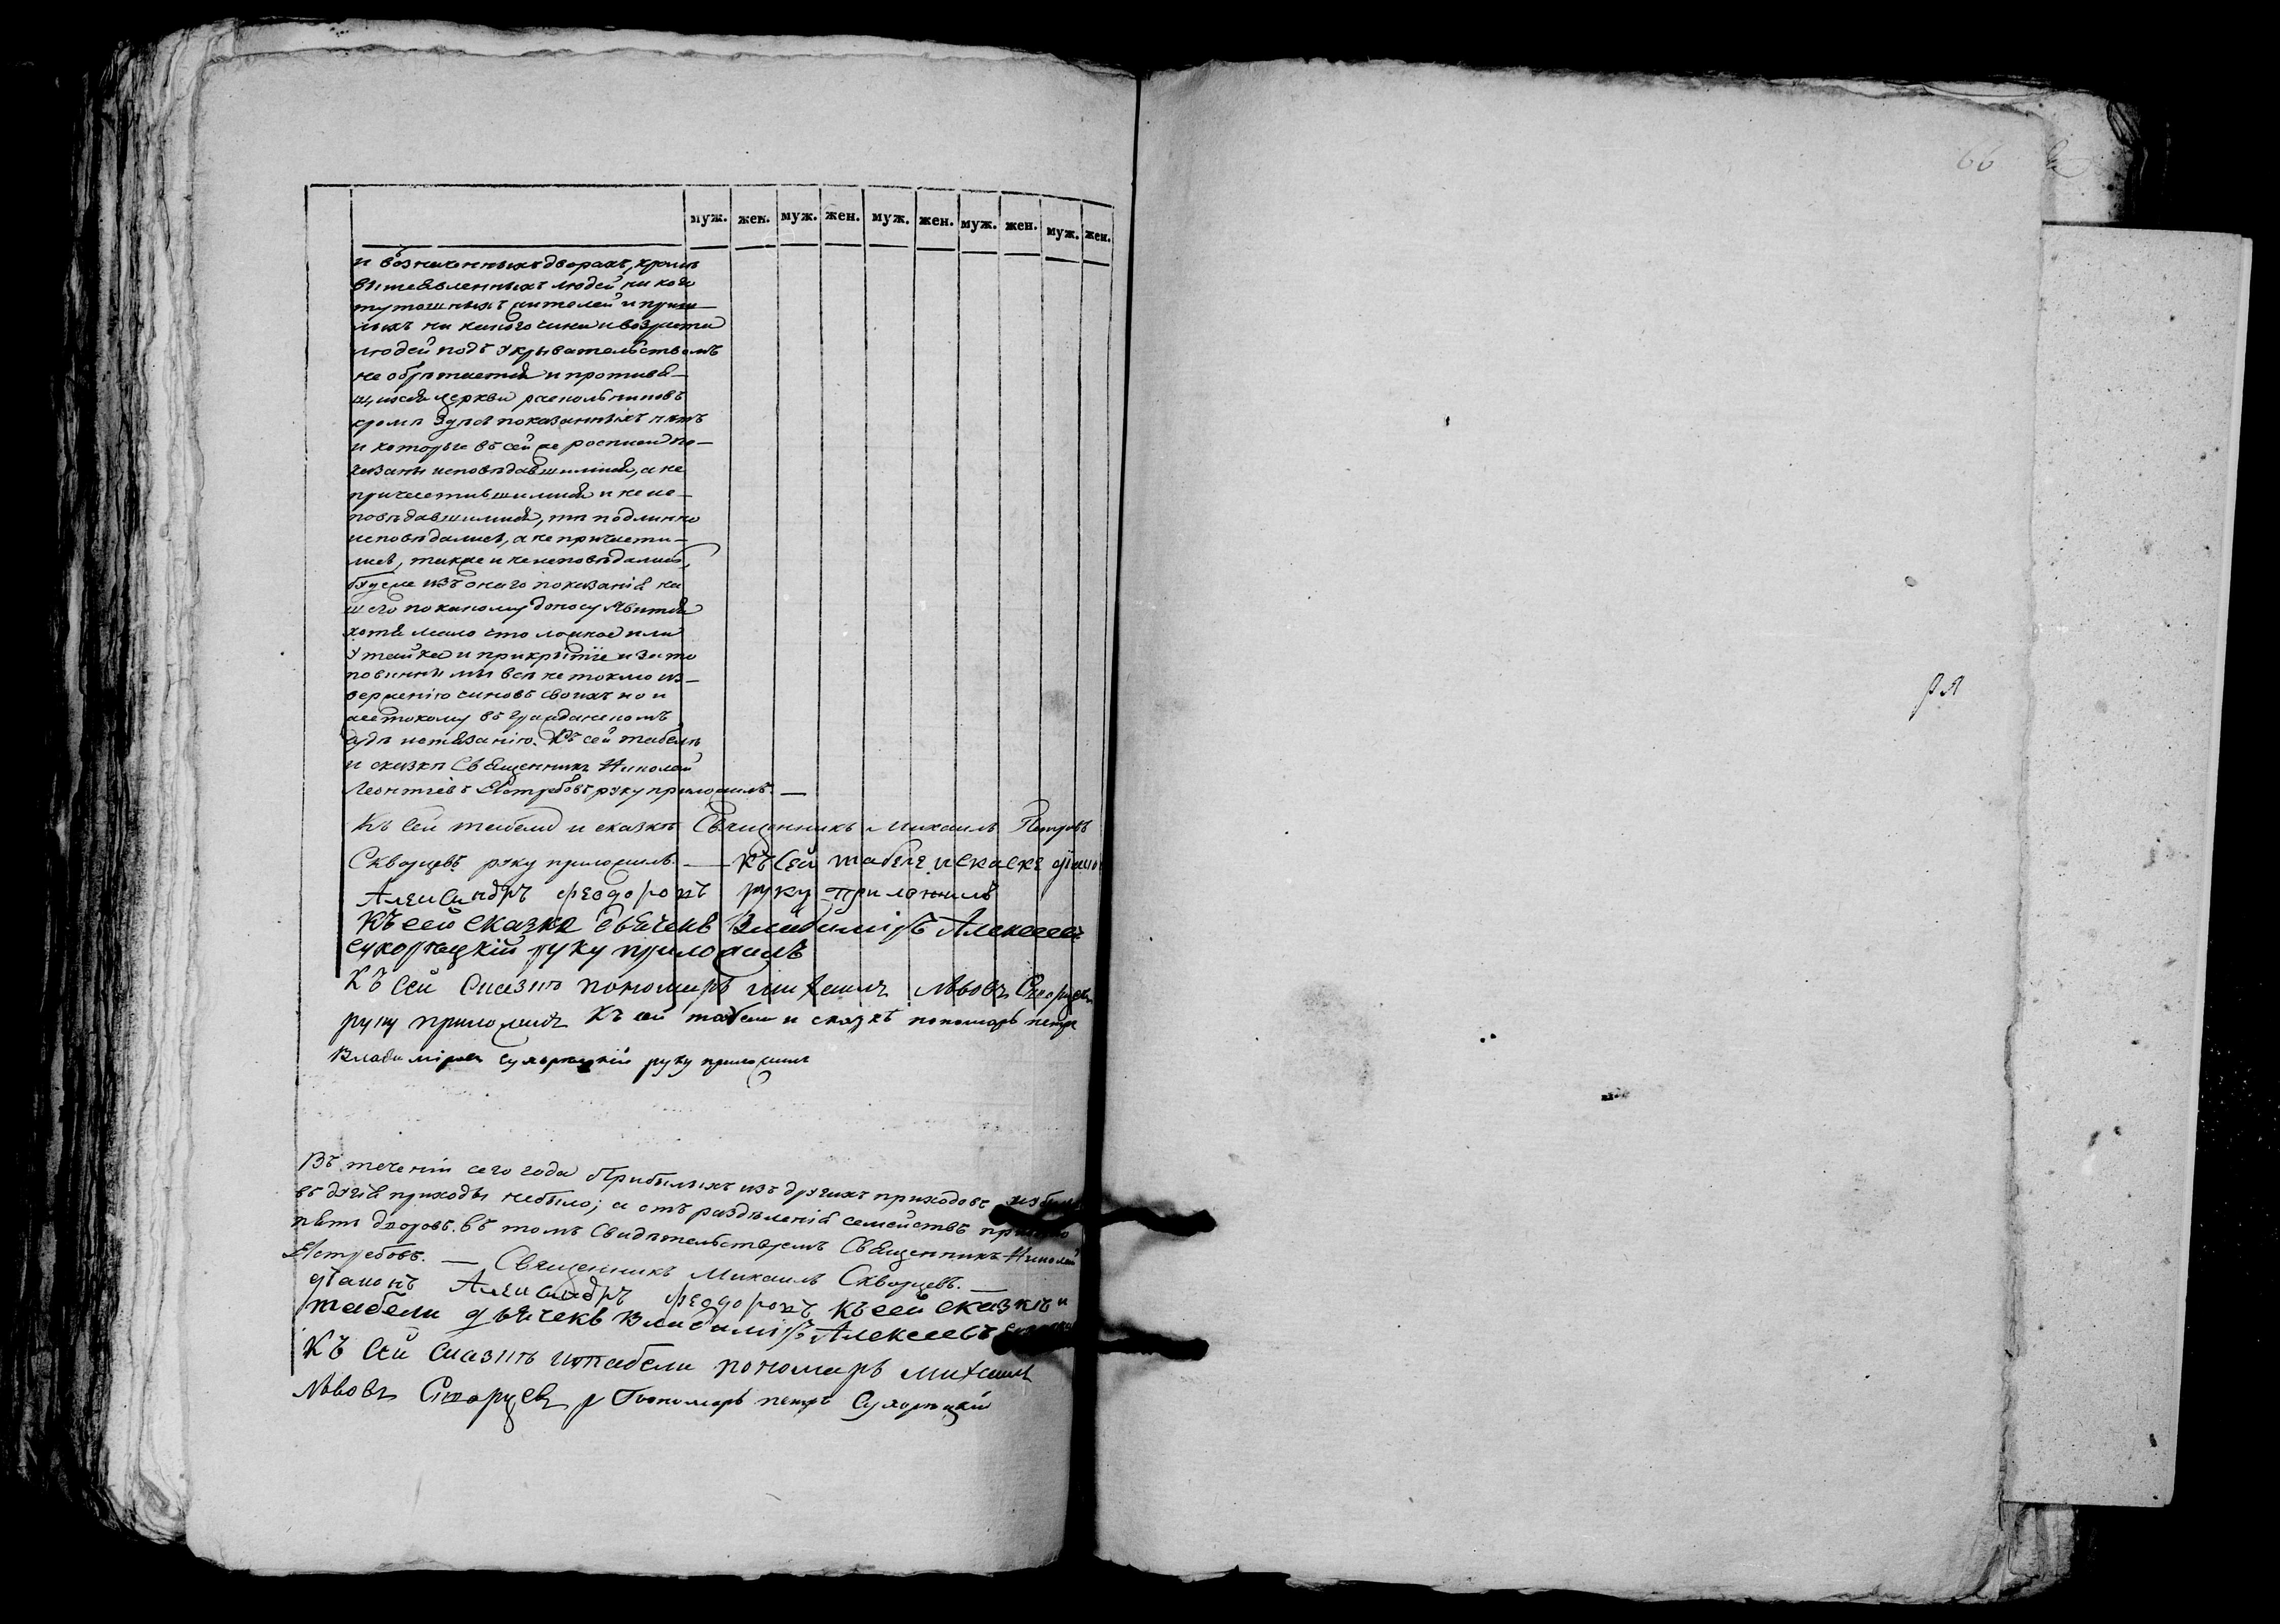 66
муж. жен. муж. жен. муж. жен. муж. жен. муж. жен.
и возначенныхъ дворахъ, кромѣ
вышеявленныхъ людей ни кого
тутошныхъ жителей и приш-
лыхъ ни какого чина и возраста
людей подъ укрывательствомъ
не обрѣтается и противя-
щихся церкви раскольниковъ
кромѣ здѣсь показанныхъ нѣтъ
и которые въ сей же росписи по-
казаны исповѣдавшимися, а не
причастившимися и не ис-
повѣдавшимися, тѣ подлинно
исповѣдались, а не причасти-
лись, также и не исповѣдались,
будеже изъ онаго показанія на-
шего по какому доносу явится
хотя мало что ложное или
утайка и прикрытіе и за то
повинны мы всѣ не токмо из-
верженію чиновъ своихъ но и
жестокому въ гражданскомъ
судѣ истязанію. Къ сей табели
и сказкѣ Священникъ Николай
Леонтіевъ Ястребовъ руку приложилъ. —
Къ сей табели и сказкѣ Священникъ Михаилъ Петровъ
Скворцевъ руку приложилъ. — Къ сей табеле и скаске діако
Александръ Феодоровъ руку приложилъ
Къ сей сказке дьячекъ Владиміръ Алексеевъ
Сухоржецкій руку приложилъ
Къ сей сказкѣ пономарь Михаилъ Львовъ
руку приложилъ Къ сей табели и сказкѣ пономарь петръ
Владиміровъ руку приложилъ
Въ теченіи сего года Прибылыхъ изъ другихъ приходовъ
въ другія приходы небыло; а отъ раздѣленія семействъ
пять дворовъ. въ томъ Свидѣтельствуемъ Священникъ Николай
Ястребовъ. — Священникъ Михаилъ Скворцевъ. —
діаконъ Александръ Феодоровъ Къ сей сказкѣ и
табели дьячекъ Владиміръ Алексеевъ
Къ сей сказкѣ и табели пономарь Михаилъ
Львовъ Пономарь петръ